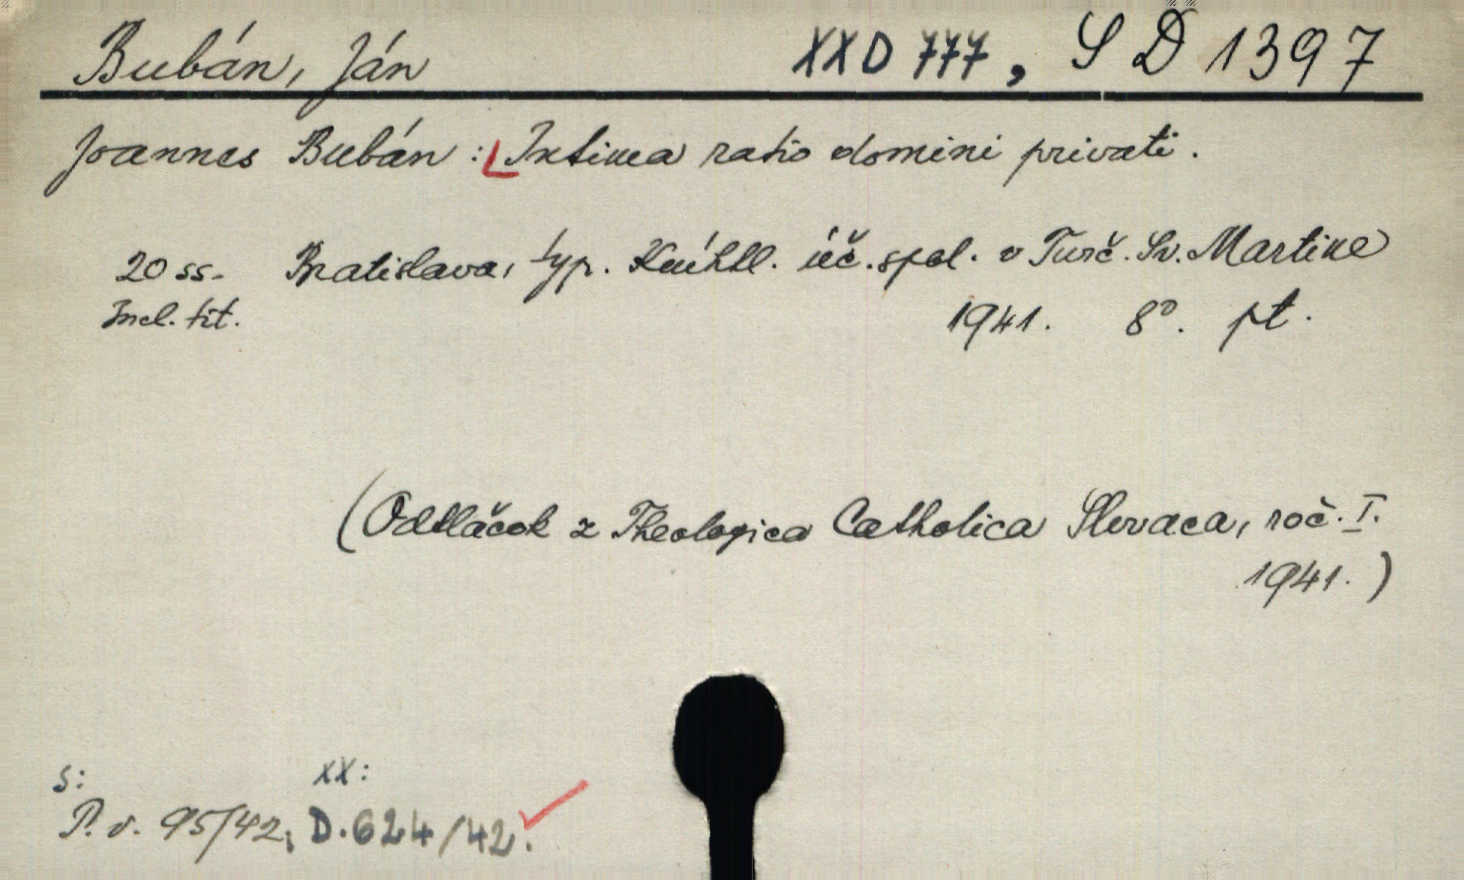 Bubán, Ján XX D 777, S D 1397
Joannes Bubán : Intima ratio domini privati.
20 ss. Bratislava, typ. Kníhtl. úč. spol. v Turč. Sv. Martine
Incl. tit. 1941. 8°. pt.
(Odtlačok z Theologica Catholica Slovaca, roč. I.
1941.)
S: XX:
P. v. 95/42, D. 624/42.